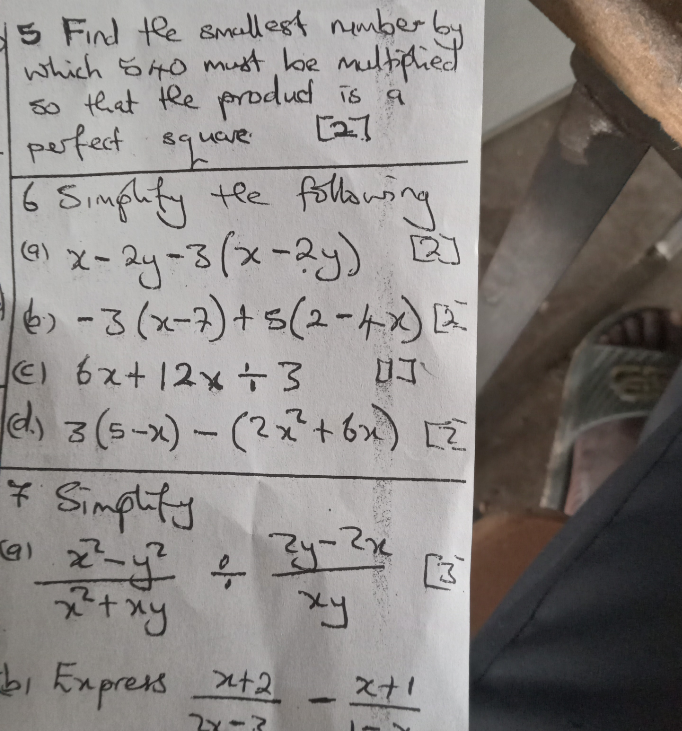 5 Find the smallest number by
which 540 must be multiplied
so that the product is a
perfect square. [2]
6 Simplify the following
(a) x - 2y - 3(x - 2y) [2]
(b) -3(x-7) + 5(2-4x) [2
(c) 6x + 12x ÷ 3 [1]
(d.) 3(5-x) - (2x² + 6x) [2
7 Simplify
(a) x² - y² / x² + xy ÷ 2y - 2x / xy [3
b) Express x+2 / 2x-3 - x+1